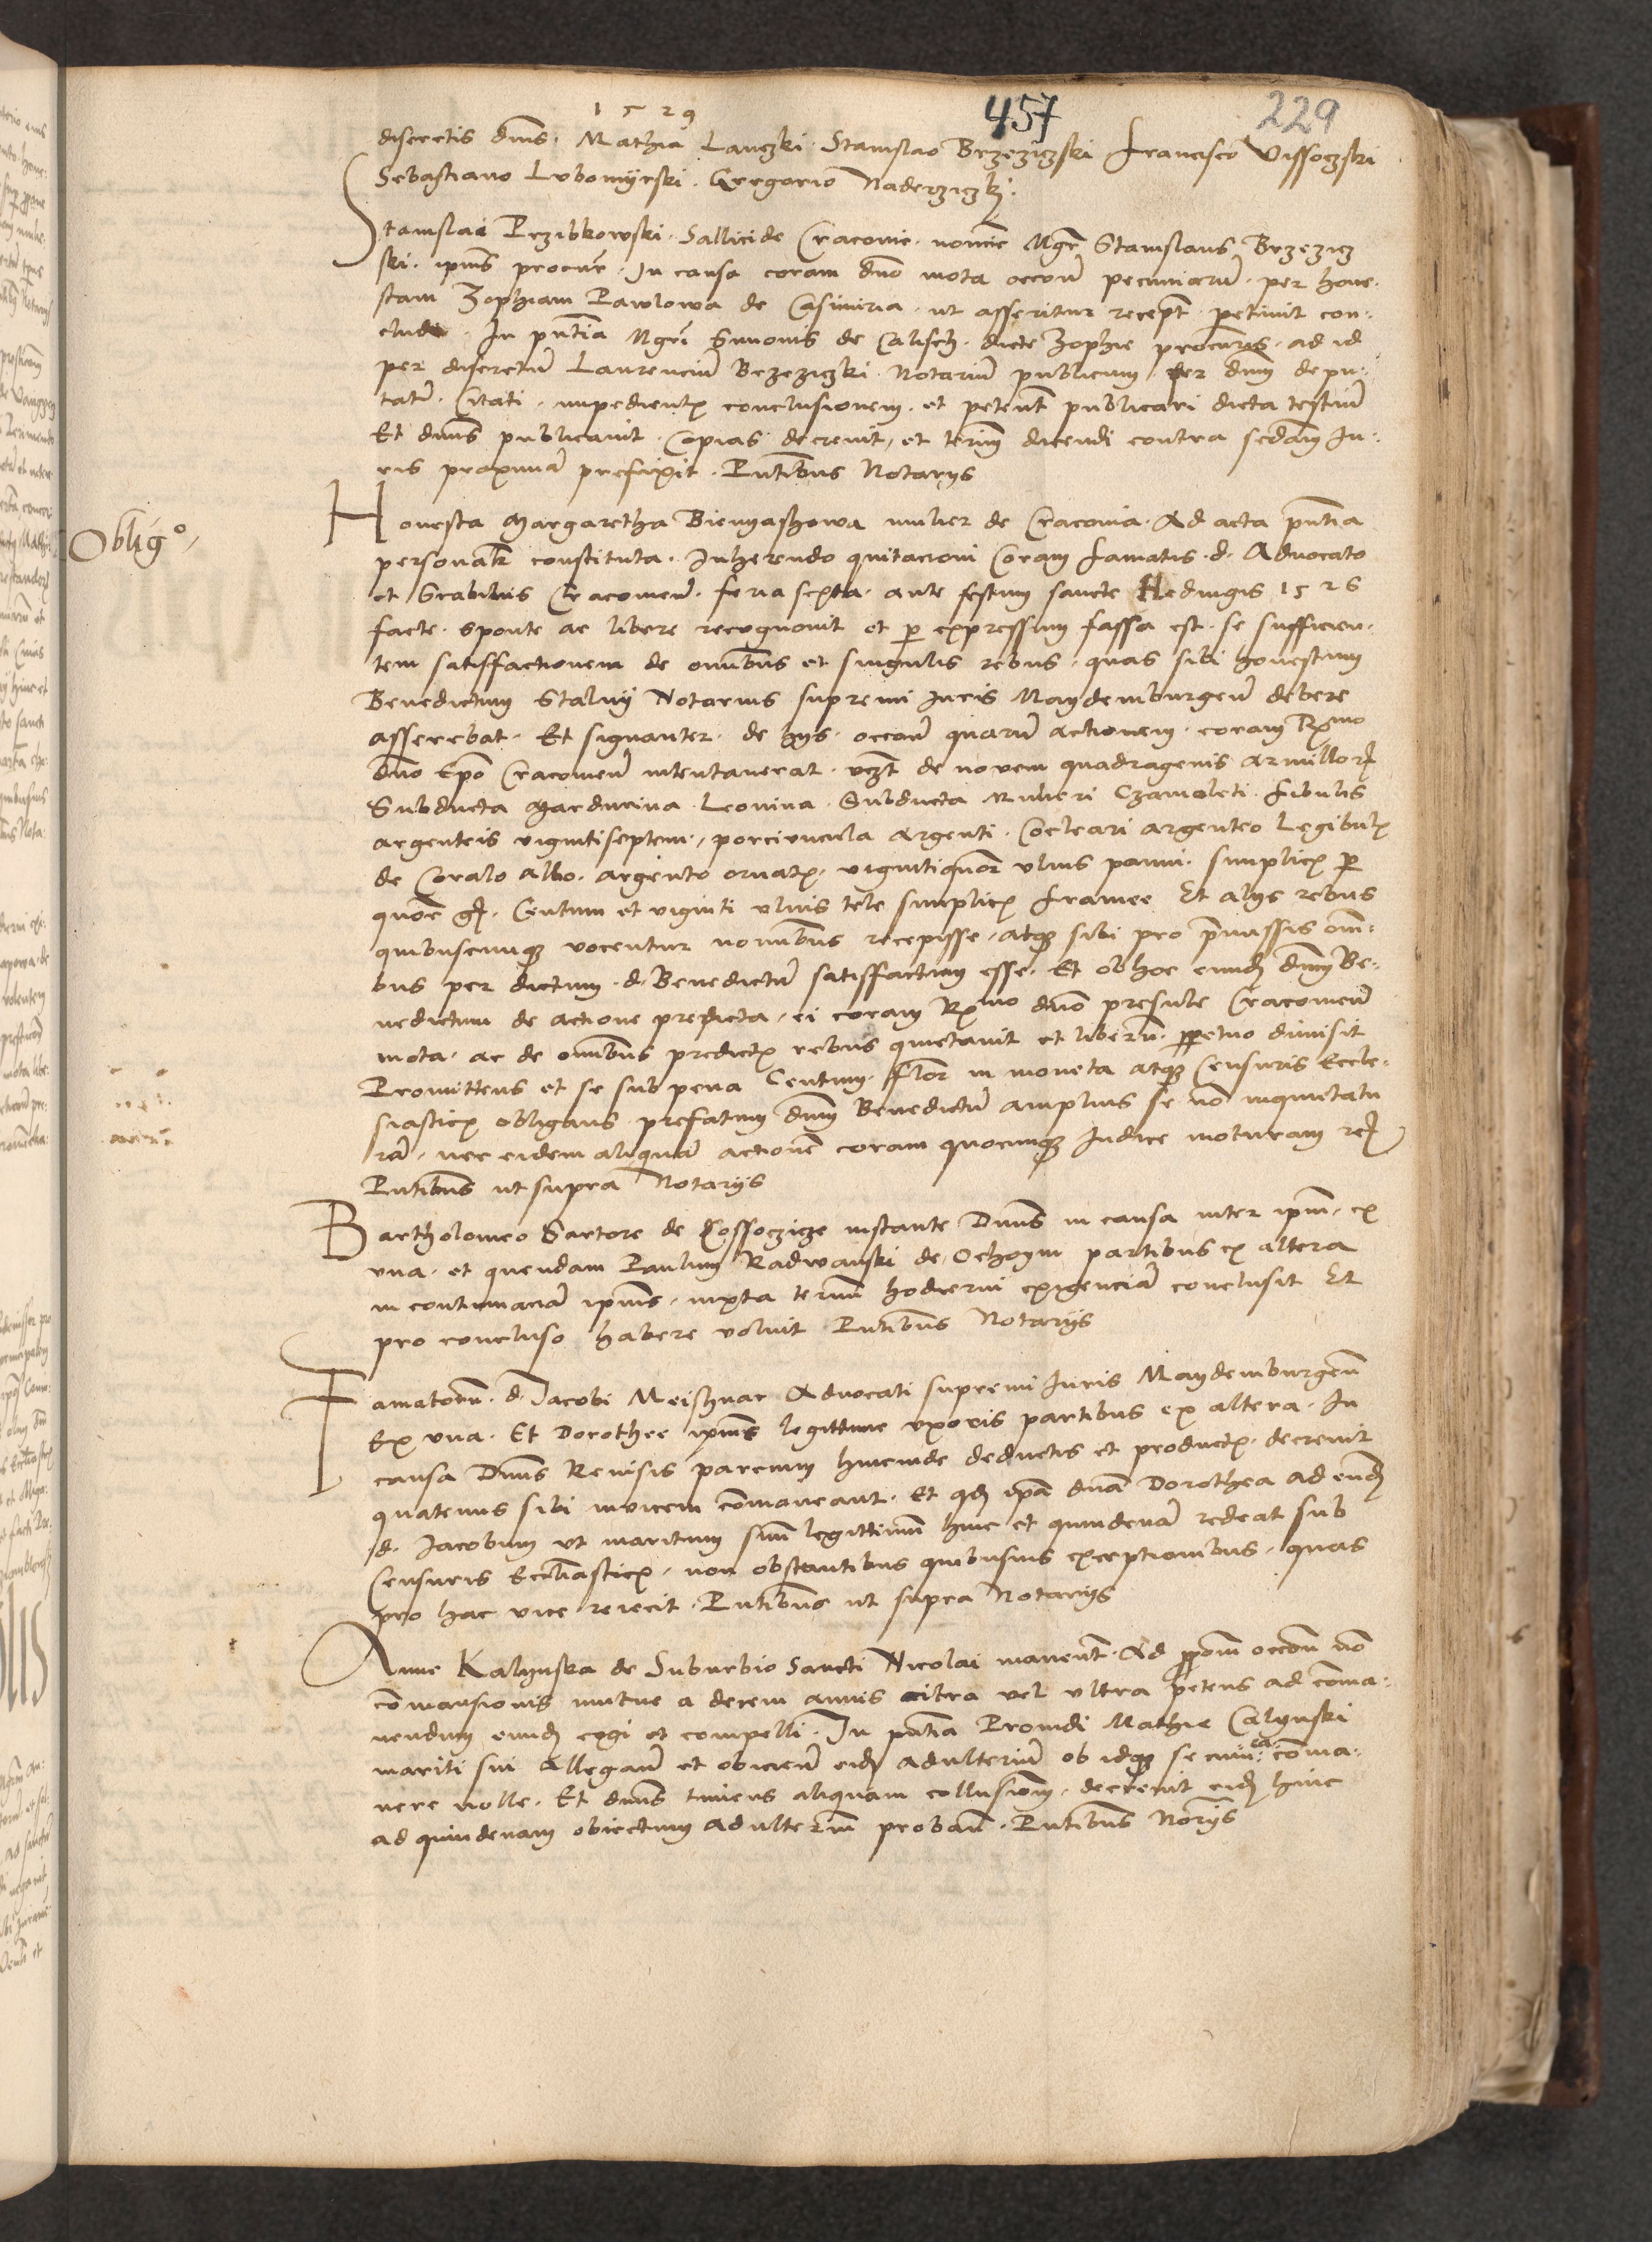 1529
457
229
discretis dnis. Mathia Lanczki. Stanislao Brzeziczski Francisco Vissoczski
Sebastiano Lubomyrski. Gregorio Naderziczky.
Stanislai Przibkowski. Sallicide Cracovie. nomine Mgr Stanislaus Brzezicz
ski. ipius procur. In causa coram dno mota occoe pecuniaru. per hone.
stam Zophiam Pawlowa de Casimiria. ut asseritur recept. petivit con:
cludi. In pntia Mgri Simonis de Calisch. dicte Zophie procuris. ad id
per discretu Laurenciu Brzeziczki Notariu publicum per dnm depu:
tatu. Citati. impedientis conclusionem. et petent publicari dicta testiu
Et dnus publicavit. Copias decrevit, et terim dicendi contra secdam Ju:
ris proximā prefixit. Pntibus Notarijs
Oblig°
Honesta Margaretha Bienyaszowa mulier de Cracovia. Ad acta pntia
personalr constituta. Inherendo quitacioni Coram famatis. d. Advocato
et Scabinis Cracovien. feria sexta. ante festum sancte Hedvigis 1526
facte. sponte ac libere recognovit et per expressum fassa est. se sufficien.
tem satisfactionem de omnibus et singulis rebus. quas sibi honestum
Benedictum Notarius supremi Juris Maydemburgen debere
asserebat. Et signanter. de hijs. occoe quaru actionem. coram Rxmo
dno Epo Cracovien intentaverat. vczt de novem quadragenis armillor
Subducta Mardurina. Leonina. Subducta Mulieri Czamoleti. fibulis
argenteis vigintiseptem, porciuncula argenti. Cocleari argenteo Legibulis
de Coralo albo. argento ornatis. vigintiquor ulnis panni. simplicis per
quor gr. Centum et viginti ulnis tele simplicis framee Et alijs rebus
quibuscumque vocentur nominibus recepisse, atque sibi pro pmissis omi:
bus per dictum. d. Benedictu satisfactum esse. Et ob hoc eundem dnm Be:
nedictum de actione predicta, ei coram Rxmo dno presule Cracovien
mota. ac de omnibus predictis rebus quietavit et liberu. perpetuo dimisit
Promittens et se sub pena Centum. flor in moneta atque Censuris Eccle:
siasticis obligans. prefatum dnm Benedictu amplius se non inquietatu
ram, nec eidem aliquā actione coram quocumque Judice moturam etc
Pntibus ut supra Notarijs
Bartholomeo Sartore de Cossoczicze instante Dnus in causa inter ipm, ex
una. et quendam Paulum Radwanski de Ochoym partibus ex altera
in contumaciā ipius, iuxta termi hodierni exigenciā conclusit Et
pro concluso habere voluit Pntibus Notarijs
Famatoru. d. Jacobi Meisznar Advocati supremi Juris Maydemburgen
Ex una. Et Dorothee ipius legittime uxoris partibus ex altera. In
causa Dnus Revisis parcium hincinde deductis et productis. decrevit
quatenus sibi invicem comaneant. Et qd ipa dna Dorothea ad eundem
d. Jacobum ut maritum suu legittimu hinc et quindenā redeat sub
Censuris Eccliasticis, non obstantibus quibusvis exceptionibus. quas
pro hac vice reiecit. Pntibus ut supra Notarijs
Anne Kalynska de Suburbio Sancti Nicolai manent. Ad pponem occoe non
comansionis mutue a decem annis citra vel ultra petens ad coma:
nendum eundem cogi et compelli. In pntia Providi Mathie Calynski
mariti sui Allegan et obicien eidem adulteriu ob idque se cum ea coma:
nere nolle. Et dnus timens aliquam collusionem. decrevit eidem hinc
ad quindenam obiectum adulterium proban. Pntibus Norijs